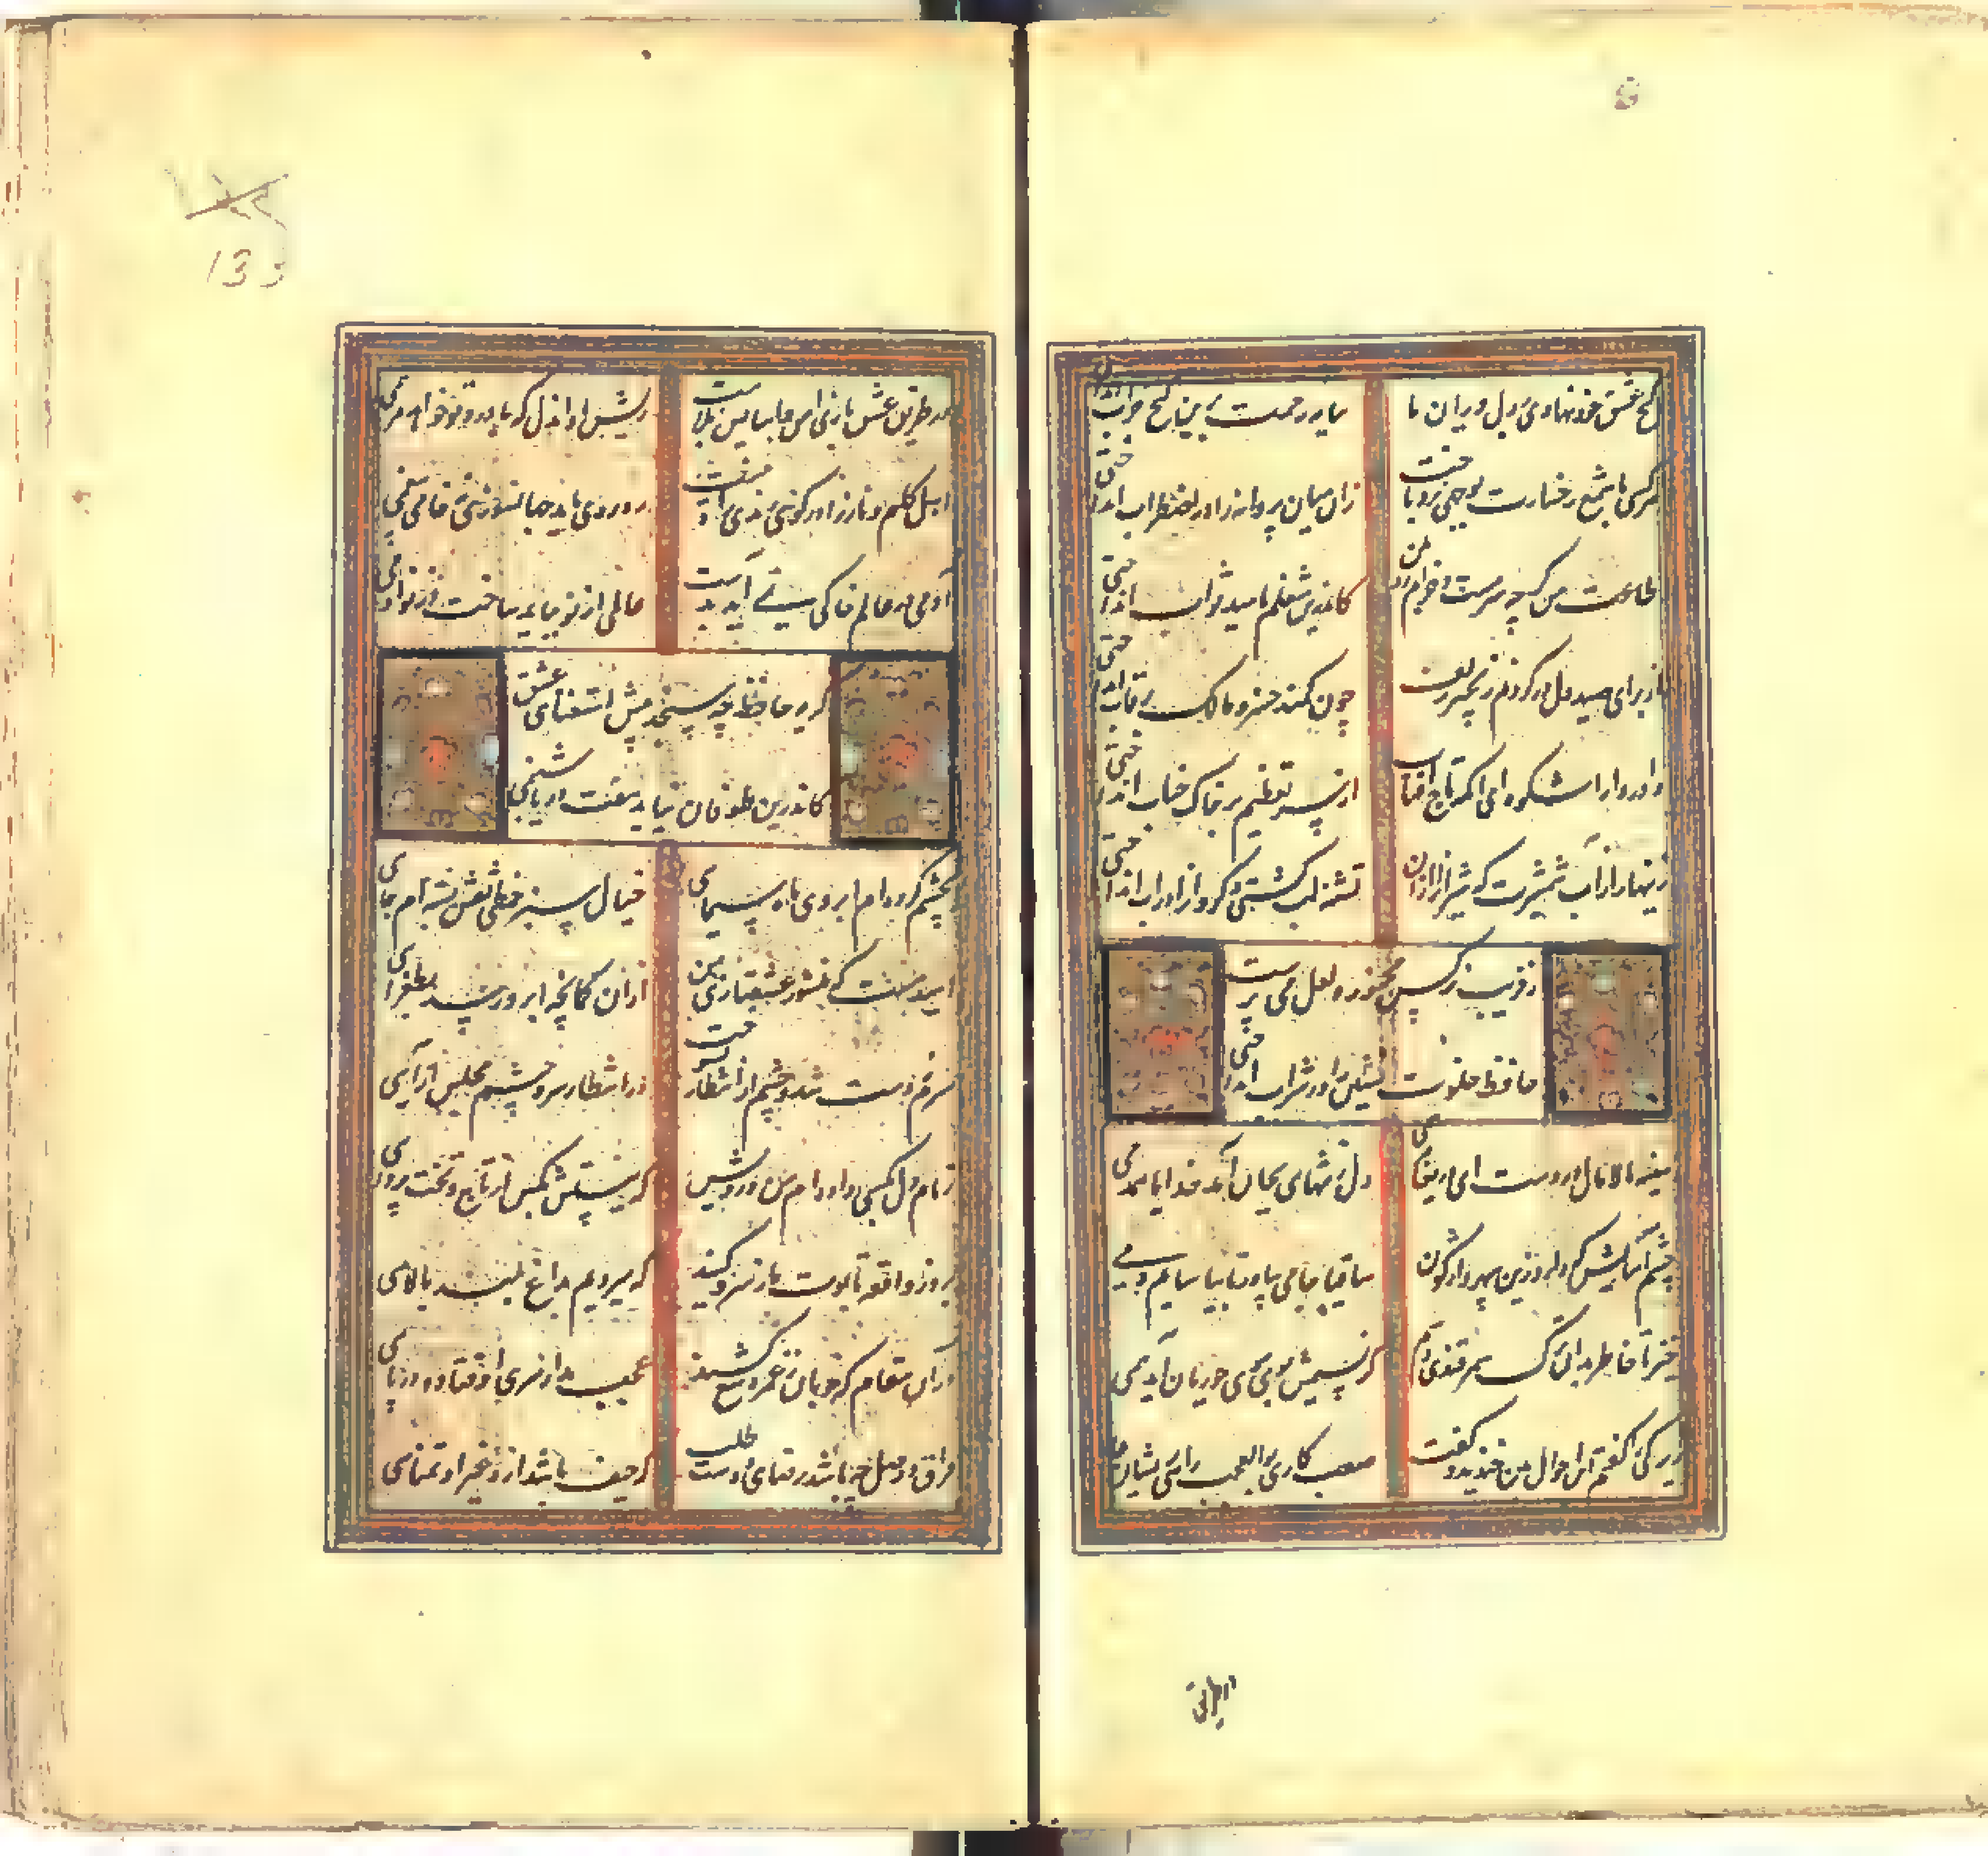 گنج عشق خود نهادی در دل ویران ما
سایه رحمت برین گنج خراب انداختی
هر کسی با شمع رخسارت بوجهی عشق باخت
زان میان پروانه را در اضطراب انداختی
طاعت من گرچه
کاندرین شغلم بامید ثواب انداختی
از برای صید دل در گردنم زنجیر زلف
چون کمند خسرو مالک رقاب انداختی
داور دارا شکوه ای آنکه تاج آفتاب
از سر تعظیم بر خاک جناب انداختی
زینهار از آب شمشیرت که شیران را ازان
تشنه لب کشتی و گردان را در آب انداختی
از فریب نرگس مخمور و لعل می پرست
حافظ خلوت نشین را در شراب انداختی
سینه مالامال دردست ای دریغا مرهمی
دل ز تنهایی بجان آمد خدایا همدمی
چشم آسایش که دارد زین سپهر
ساقیا جامی بیاور تا بیاسایم دمی
خیز تا خاطر بدان ترک سمرقندی دهیم
کز نسیمش بوی جوی مولیان آید همی
زیرکی را گفتم این احوال بین خندید و گفت
صعب کاری بوالعجب
در طریق
در طریق عشق بازی امن و آسایش بلاست
ریش باد آن دل که با درد تو خواهد مرهمی
اهل کام و ناز را در کوی رندی راه نیست
ره روی باید جهانسوزی نه خامی بیغمی
آدمی در عالم خاکی نمی آید بدست
عالمی از نو بباید ساخت وز نو آدمی
گریه حافظ چه سنجد پیش استغنای عشق
کاندرین طوفان نماید هفت دریا شبنمی
بچشم کرده ام ابروی ماه سیمای
خیال سبز خطی نقش بسته ام جای
امید هست که منشور عشقبازی من
ازان کمانچه ابرو رسد بطغرای
سرم ز دست بشد چشم از انتظار بسوخت
در انتظار سر و چشم مجلس آرای
زمام دل بکسی داده ام من درویش
که نیستش بکس از تاج و تخت پروای
بروز واقعه تابوت ما ز سرو کنید
که میرویم بداغ بلند بالای
در آن مقام که خوبان ز غمزه تیغ کشند
عجب مدار سری اوفتاده در پای
فراق و وصل چه باشد رضای دوست طلب
که حیف باشد ازو غیر او تمنای
133